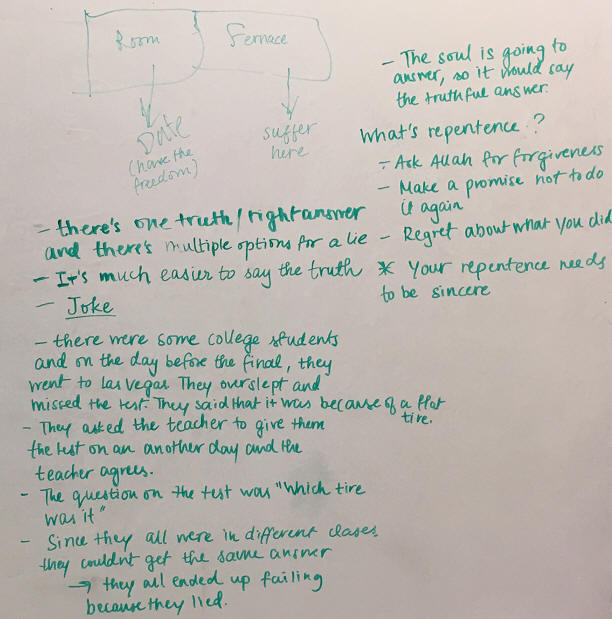 Room
Fernace
Date
(have the
freedom)
suffer
here
- The soul is going to
answer, so it would say
the truthful answer.
What's repentence?
- Ask Allah for forgiveness
- Make a promise not to do
it again
- Regret about what you did
* Your repentence needs
to be sincere
- there's one truth/right answer
and there's multiple options for a lie
- It's much easier to say the truth
- Joke
- there were some college students
and on the day before the final, they
went to Las Vegas. They overslept and
missed the test. They said that it was because of a flat
tire.
- They asked the teacher to give them
the test on an another day and the
teacher agrees.
- The question on the test was "Which tire
was it"
- Since they all were in different clases
they couldn't get the same answer
→ they all ended up failing
because they lied.